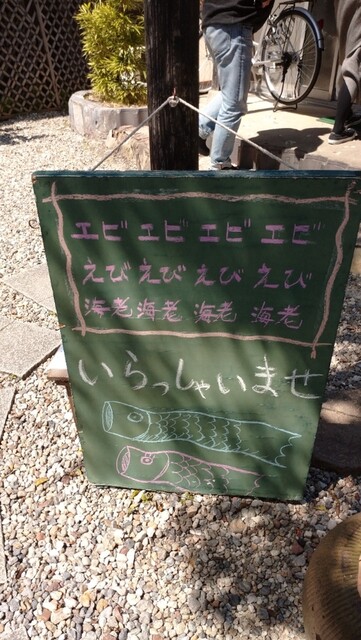 エビ エビ エビ エビ
えび えび えび えび
海老 海老 海老 海老
いらっしゃいませ